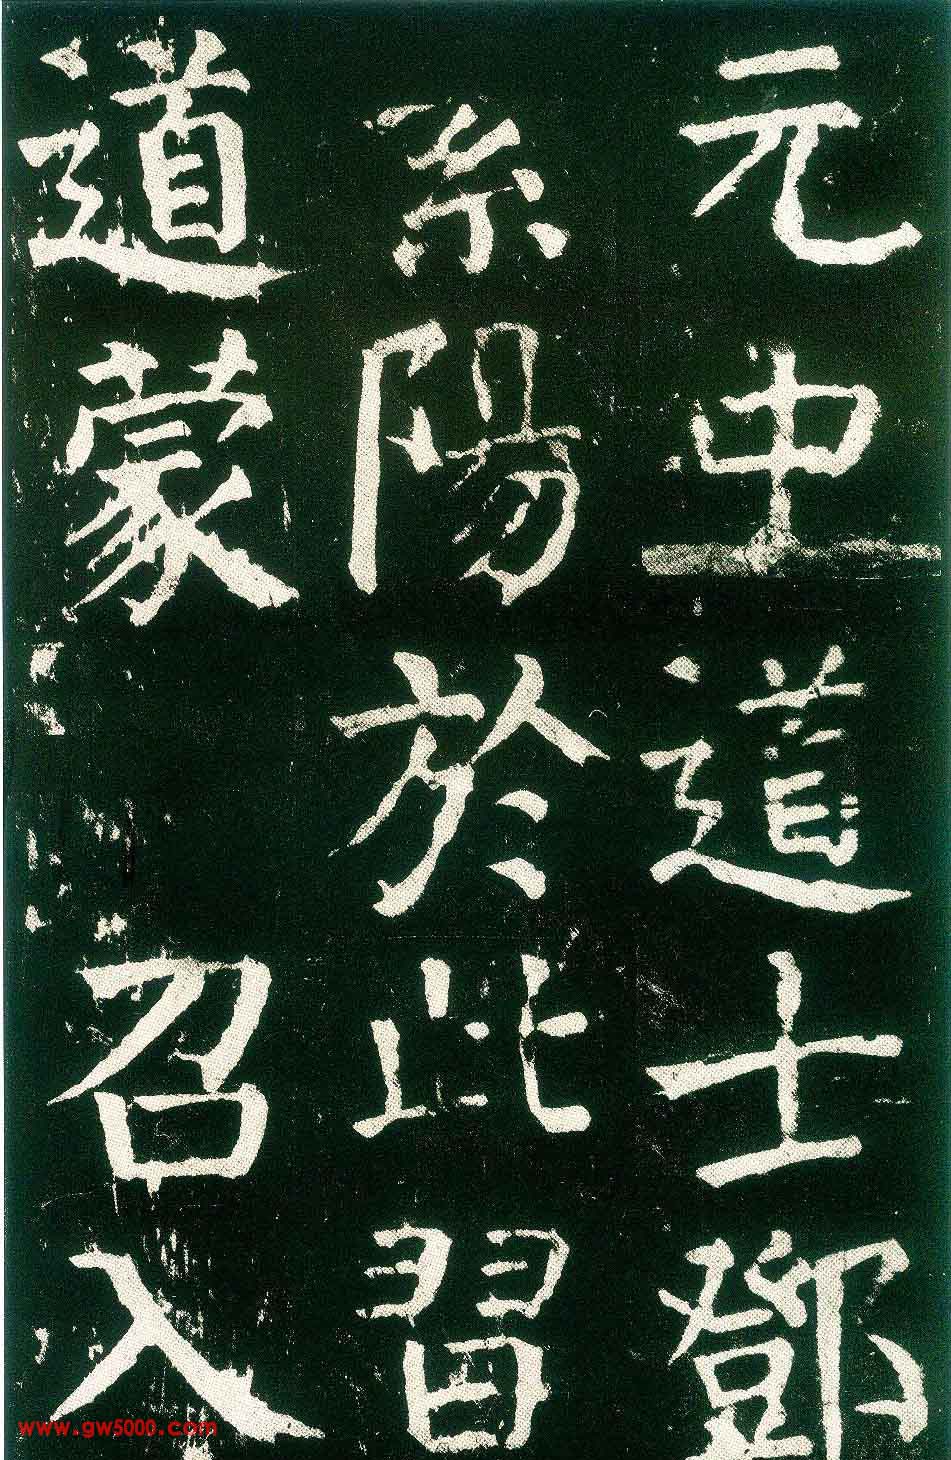 元中道士鄧
紊陽於此習
道蒙 召入
www.gw5000.com